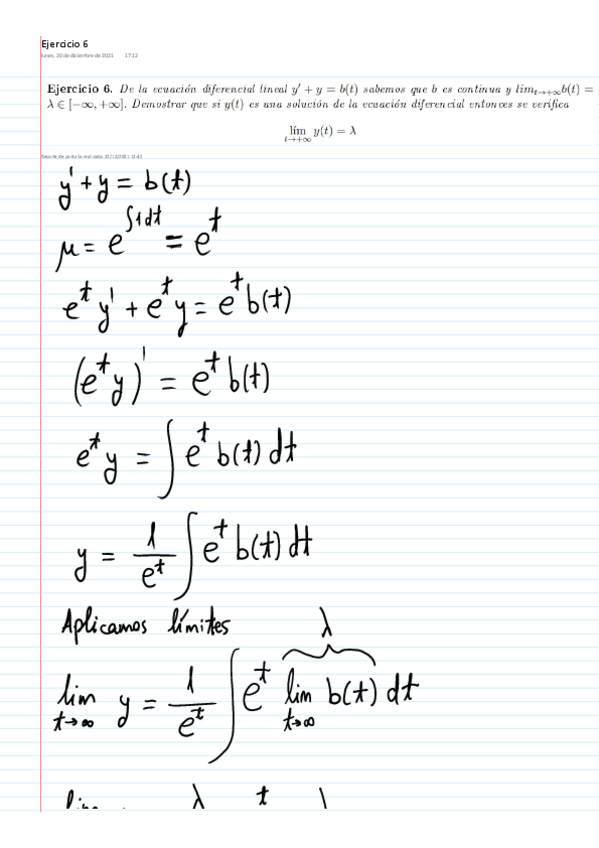 Ejercicio 6
lunes, 20 de diciembre de 2021 17:12
Ejercicio 6. De la ecuación diferencial lineal y′ + y = b(t) sabemos que b es continua y lim_{t→+∞} b(t) =
λ ∈ [−∞, +∞]. Demostrar que si y(t) es una solución de la ecuación diferencial entonces se verifica
lím_{t→+∞} y(t) = λ
y' + y = b(t)
μ = e^{∫1dt} = e^t
e^t y' + e^t y = e^t b(t)
(e^t y)' = e^t b(t)
e^t y = ∫ e^t b(t) dt
y = 1/e^t ∫ e^t b(t) dt
Aplicamos límites λ
lim_{t→∞} y = 1/e^t ∫ e^t lim_{t→∞} b(t) dt